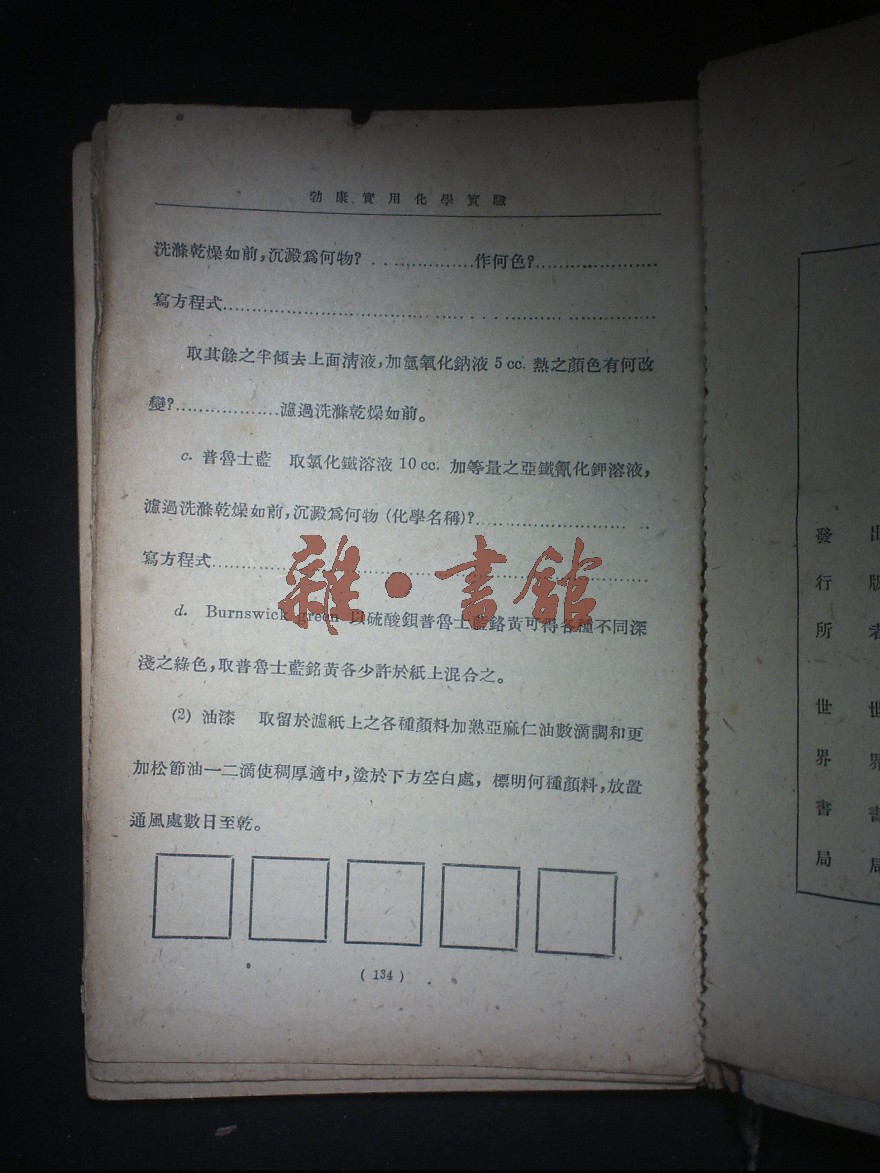 勃康實用化學實驗
洗滌乾燥如前,沉澱爲何物?...................作何色?.....................
寫方程式...........................................................................
取其餘之半傾去上面淸液,加氫氧化鈉液 5 cc. 熱之顏色有何改
變?..................濾過洗滌乾燥如前。
c. 普魯士藍 取氯化鐵溶液 10 cc. 加等量之亞鐵氰化鉀溶液,
濾過洗滌乾燥如前,沉澱爲何物 (化學名稱)?............................
寫方程式...........................................................................
d. Burnswick green 以硫酸鋇普魯士藍鉻黃可得各種不同深
淺之綠色,取普魯士藍鉻黃各少許於紙上混合之。
(2) 油漆 取留於濾紙上之各種顏料加熟亞麻仁油數滴調和更
加松節油一二滴使稠厚適中,塗於下方空白處, 標明何種顏料,放置
通風處數日至乾。
( 134 )
雜·書館
出版者 世界書局
發行所 世界書局